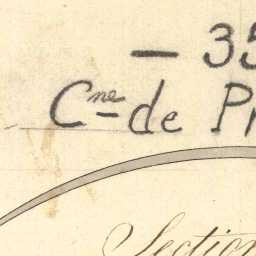 — 35
Cne de Pr
Section